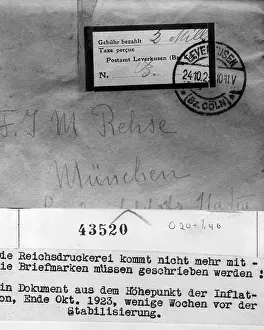 Gebühr bezahlt 2 Mill
Taxe perçue
Postamt Leverkusen (Be
N.
LEVERKUSEN
24.10.2
10-11 V
(Bz. CÖLN)
F. J M Rehse
München
43520
020-1,40
die Reichsdruckerei kommt nicht mehr mit -
ie Briefmarken müssen geschrieben werden :
in Dokument aus dem Höhepunkt der Inflat-
on, Ende Okt. 1923, wenige Wochen vor der
Stabilisierung.